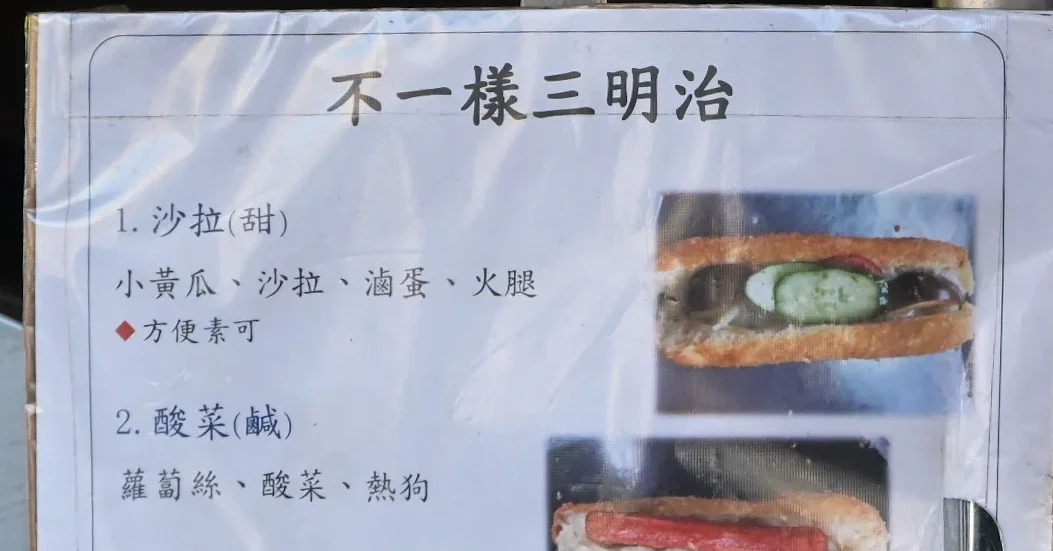 不一樣三明治
1. 沙拉(甜)
小黃瓜、沙拉、滷蛋、火腿
◆方便素可
2. 酸菜(鹹)
蘿蔔絲、酸菜、熱狗